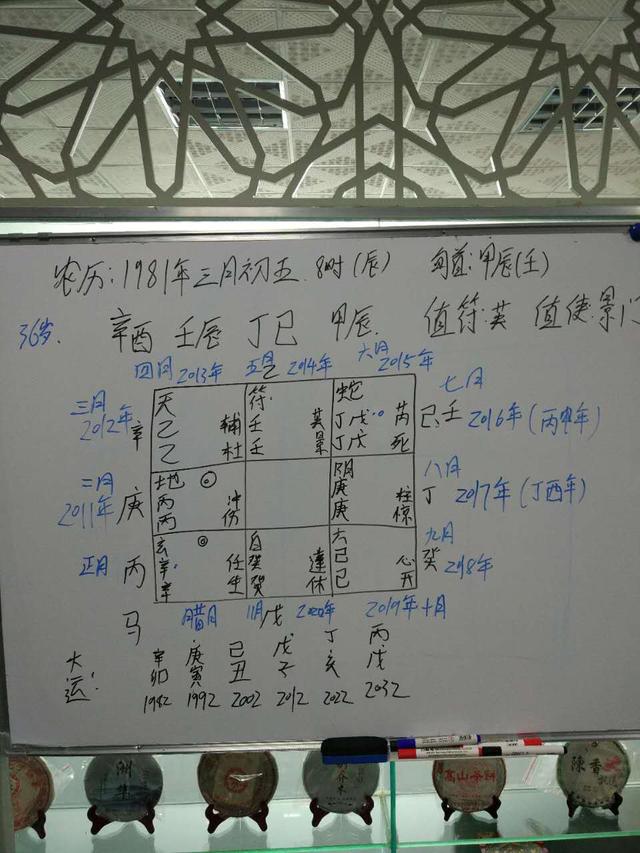 农历:1981年三月初五 8时(辰) 旬首:甲辰(壬)
36岁. 辛酉 壬辰 丁巳 甲辰. 值符:英 值使:景门
四月2013年 五月2014年 六月2015年
三月 2012年 辛
天 乙 乙 辅 杜
符: 壬 壬 英 景
蛇 丁戊 丁戊 芮 死
七月 己壬 2016年(丙申年)
二月 2011年 庚
地 丙 丙 冲 伤
阴 庚 庚 柱 惊
八月 丁 2017年(丁酉年)
正月 丙
玄 辛 辛 任 生
白 癸 癸 蓬 休
六 己 己 心 开
九月 癸 2018年
马 腊月 11月 戊 2020年 2019年十月
大运: 辛卯 庚寅 己丑 戊子 丁亥 丙戌
1982 1992 2002 2012 2022 2032
高山茶韵
陈香